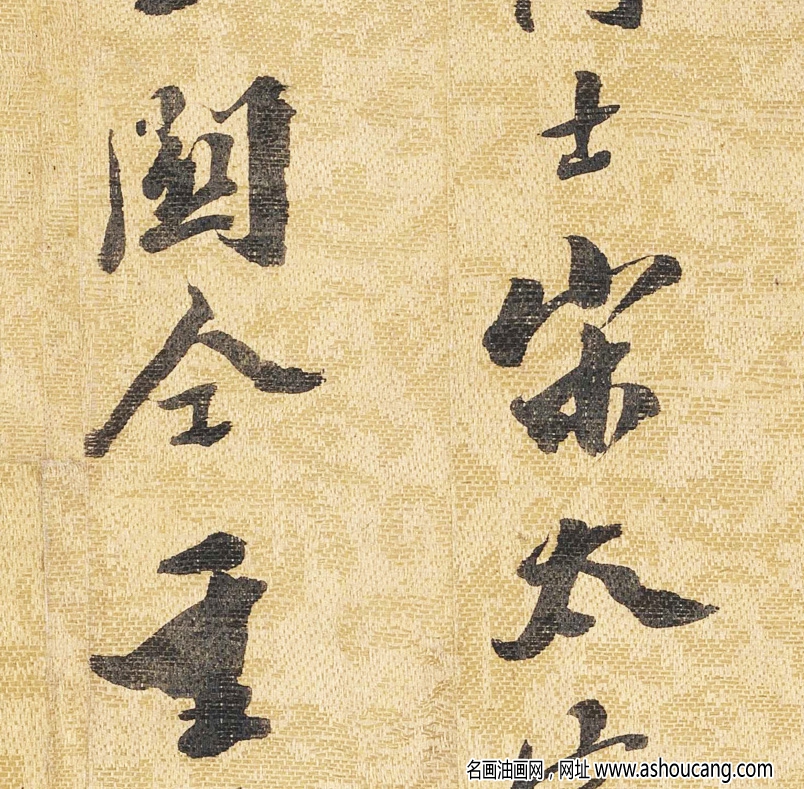 士宋太
關仝重
名画油画网，网址 www.ashoucang.com